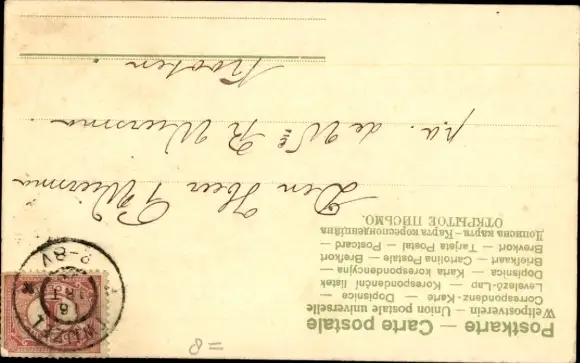 Postkarte — Carte postale
Weltpostverein — Union postale universelle
Correspondenz-Karte — Dopisnice —
Levelező-Lap — Korespondenční lístek
Dopisnica — Karta korespondencyjna —
Briefkaart — Cartolina Postale — Brefkort
Brevkort — Tarjeta Postal — Postcard —
Дописна карта — Карта кореспонденційна
ОТКРЫТОЕ ПИСЬМО.
Den Heer P. Wiersma
p.a. de Wed R Wiersma
Kooten.
=8